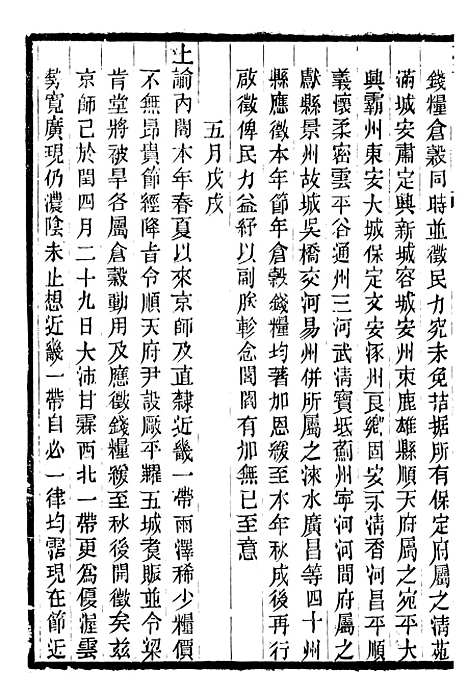 錢糧倉穀同時並徵民力究未免拮据所有保定府屬之淸苑
滿城安肅定興新城容城安州束鹿雄縣順天府屬之宛平大
興霸州東安大城保定文安涿州良鄉固安永淸香河昌平順
義懷柔密雲平谷通州三河武淸寶坻薊州寧河河間府屬之
獻縣景州故城吳橋交河易州併所屬之淶水廣昌等四十州
縣應徵本年節年倉穀錢糧均著加恩緩至本年秋成後再行
啟徵俾民力益紓以副朕軫念閭閻有加無已至意
五月戊戌
上諭内閣本年春夏以來京師及直隸近畿一帶雨澤稀少糧價
不無昻貴節經降旨令順天府尹設厰平糶五城煮賑並令梁
肯堂將被旱各屬倉穀動用及應徵錢糧緩至秋後開徵矣兹
京師已於閏四月二十九日大沛甘霖西北一帶更爲優渥雲
勢寛廣現仍濃陰未止想近畿一帶自必一律均霑現在節近